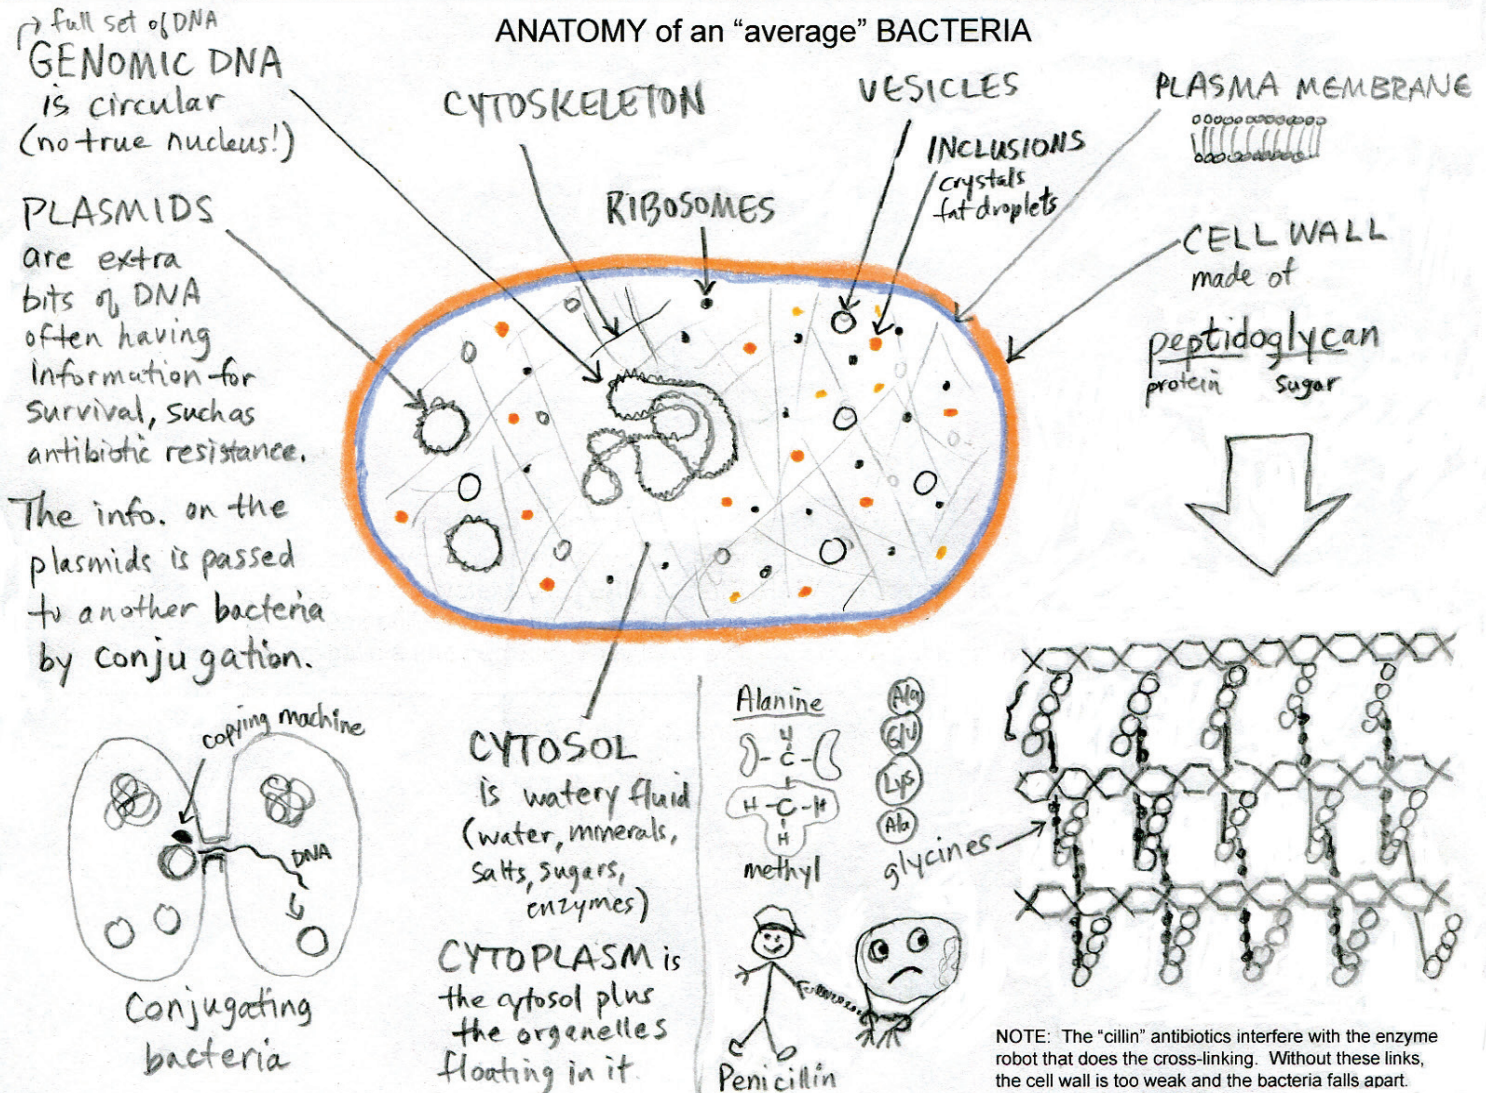 ANATOMY of an “average” BACTERIA
full set of DNA
GENOMIC DNA
is circular
(no true nucleus!)
PLASMIDS
are extra
bits of DNA
often having
information for
survival, such as
antibiotic resistance.
The info. on the
plasmids is passed
to another bacteria
by conjugation.
copying machine
DNA
Conjugating
bacteria
CYTOSKELETON
RIBOSOMES
VESICLES
INCLUSIONS
crystals
fat droplets
PLASMA MEMBRANE
CELL WALL
made of
peptidoglycan
protein sugar
CYTOSOL
is watery fluid
(water, minerals,
salts, sugars,
enzymes)
CYTOPLASM is
the cytosol plus
the organelles
floating in it.
Alanine
H
C
H-C-H
H
methyl
Ala
Glu
Lys
Ala
glycines
Penicillin
NOTE: The “cillin” antibiotics interfere with the enzyme
robot that does the cross-linking. Without these links,
the cell wall is too weak and the bacteria falls apart.